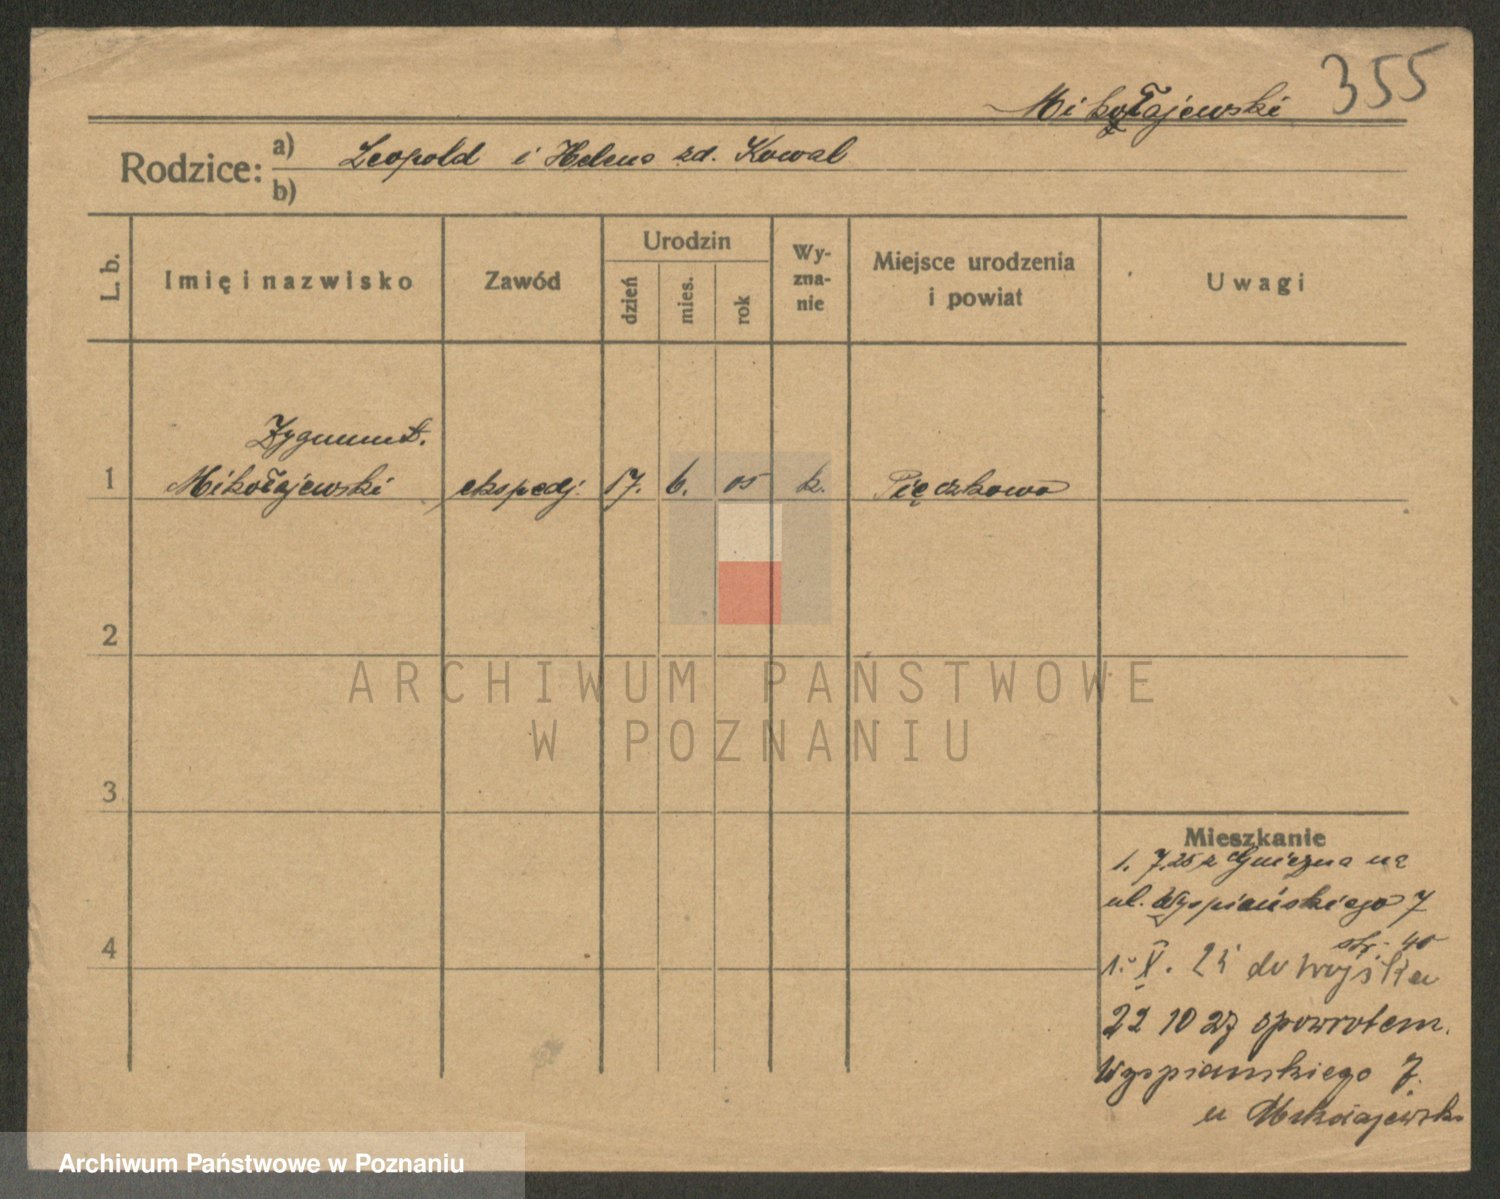 355
Mikołajewski
Rodzice: a) Leopold i Helena zd. Kowal
b)
L. b.
Imię i nazwisko
Zawód
Urodzin
dzień
mies.
rok
Wy-
zna-
nie
Miejsce urodzenia
i powiat
Uwagi
Zygmunt.
1 Mikołajewski ekspedj. 17. 6. 05 k. Pięczkowo
2
3
4
ARCHIWUM PAŃSTWOWE
W POZNANIU
Mieszkanie
1. 7.25 z Gniezna na
ul. Wyspiańskiego 7
str. 40
1. X. 25 do wojska
22 10 27 spowrotem.
Wyspianskiego 7.
u Mikołajewsk
Archiwum Państwowe w Poznaniu